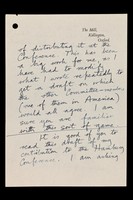 The Mill,
Kidlington,
Oxford
of distributing it at the
Conference. This has been
a big work for me, as I
have had to work on
what I wrote repeatedly to
get a draft on which
the other Committee-members
(one of them in America)
would all agree. I am
sure you are familiar
with this sort of game.
It is good of you to
read this draft of my
invitation to the Hamburg
Conference. I am asking